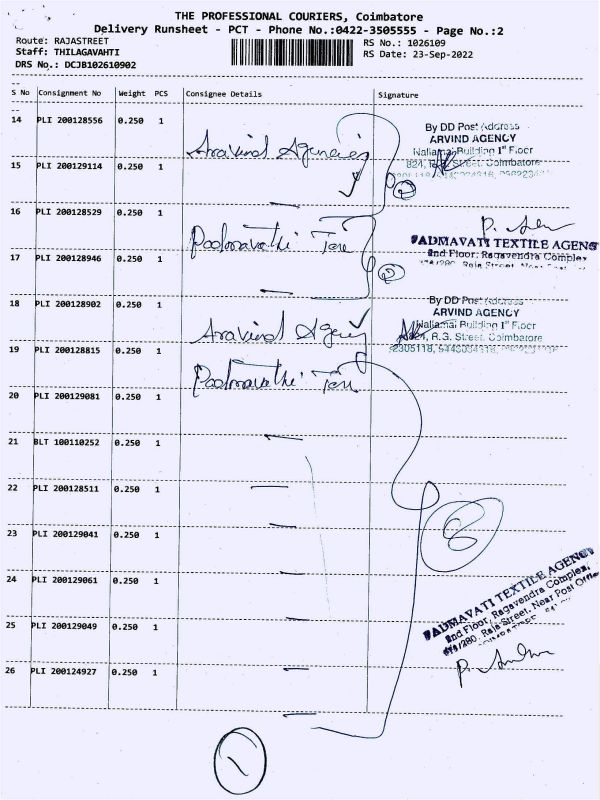 THE PROFESSIONAL COURIERS, Coimbatore
Delivery Runsheet - PCT - Phone No.:0422-3505555 - Page No.:2
Route: RAJASTREET RS No.: 1026109
Staff: THILAGAVAHTI RS Date: 23-Sep-2022
DRS No.: DCJB102610902
S No Consignment No Weight PCS Consignee Details Signature
14 PLI 200128556 0.250 1
By DD Post Address
ARVIND AGENCY
Nallamai Building 1st Floor
824, R.G. Street, Coimbatore
Aravind Agencies
15 PLI 200129114 0.250 1
2
16 PLI 200128529 0.250 1
Padmavathi Tex
PADMAVATI TEXTILE AGENCY
2nd Floor, Ragavendra Complex
17 PLI 200128946 0.250 1
2
18 PLI 200128902 0.250 1
By DD Post Address
ARVIND AGENCY
Nallamai Building 1st Floor
824, R.G. Street, Coimbatore
Aravind Agency
19 PLI 200128815 0.250 1
Padmavathi Tex
20 PLI 200129081 0.250 1
21 BLT 100110252 0.250 1
22 PLI 200128511 0.250 1
8
23 PLI 200129041 0.250 1
24 PLI 200129061 0.250 1
PADMAVATI TEXTILE AGENCY
2nd Floor, Ragavendra Complex,
Raja Street, Near Post Office
25 PLI 200129049 0.250 1
26 PLI 200124927 0.250 1
1